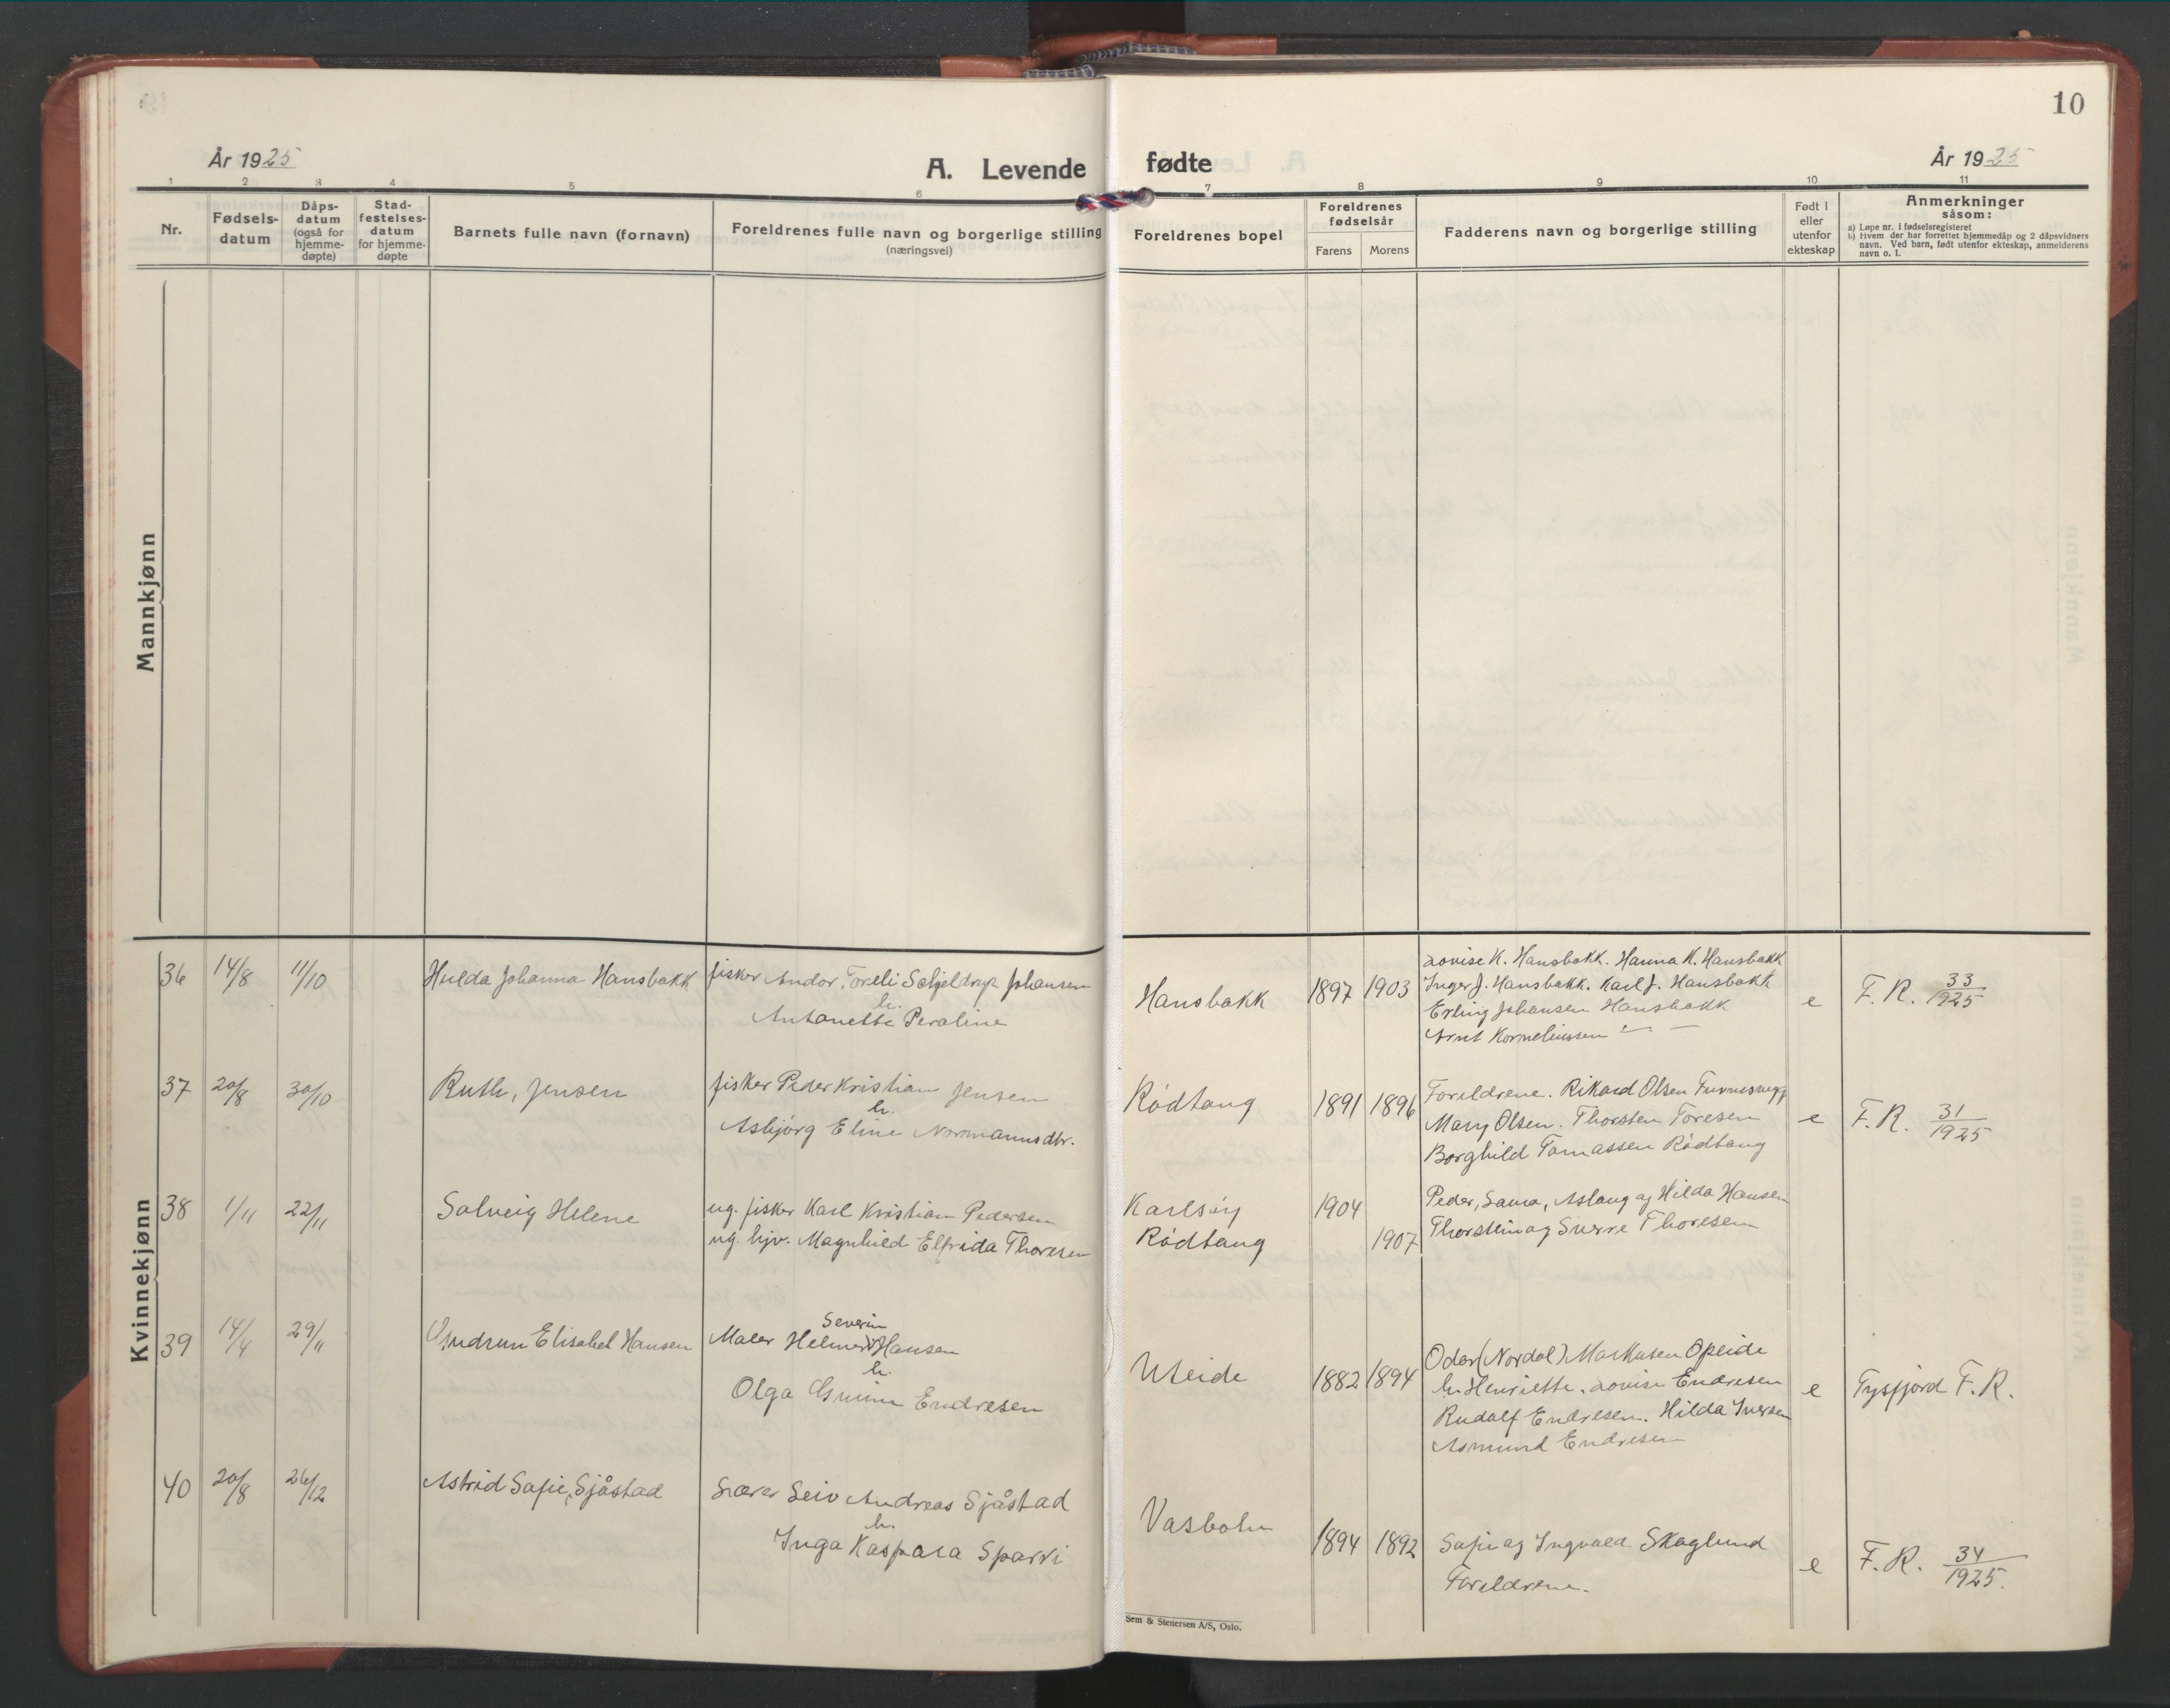 10
År 1925
A. Levende fødte
År 1925
1 2 3 4 5 6 7 8 9 10 11
Nr.
Fødsels-
datum
Dåps-
datum
(også for
hjemme-
døpte)
Stad-
festelses-
datum
for hjemme-
døpte
Barnets fulle navn (fornavn)
Foreldrenes fulle navn og borgerlige stilling
(næringsvei)
Foreldrenes bopel
Foreldrenes
fødselsår
Farens Morens
Fadderens navn og borgerlige stilling
Født i
eller
utenfor
ekteskap
Anmerkninger
såsom:
a) Løpe nr. i fødselsregisteret
b) Hvem der har forrettet hjemmedåp og 2 dåpsvidners
navn. Ved barn, født utenfor ekteskap, anmelderens
navn o. l.
Mannkjønn
Kvinnekjønn
36 14/8 11/10 Hulda Johanna Hansbakk
fisker Andor Toreli Schjeldrup Johansen
h.
Antonette Peraline
Hansbakk 1897 1903
Lovise K. Hansbakk. Hanna K. Hansbakk
Inger J. Hansbakk. Karl J. Hansbakk
Erling Johansen Hansbakk
Arnt Korneliussen
e F. R. 33/1925
37 20/8 30/10 Ruth, Jensen
fisker Peder Kristian Jensen
h.
Asbjørg Eline Normannsdtr.
Rødtang 1891 1896
Foreldrene. Rikard Olsen
Mary Olsen. Thorsten Toresen
Borghild Tomassen Rødtang
e F. R. 31/1925
38 1/11 22/11 Solveig Helene
ug. fisker Karl Kristian Pedersen
ug. hjv. Magnhild Elfrida Thoresen
Karlsøy 1904
Rødtang 1907
Peder, Aslaug og Hilda Hansen
Thorstein og Sverre Thoresen
39 14/4 29/11 Gudrun Elisabet Hansen
Severin
Maler Helmer Hansen
h.
Olga Endresen
Uleide 1882 1894
Odar (Nordal) Markusen Opeide
h. Henriette. Lovise Endresen
Rudolf Endresen. Hilda Iversen
Asmund Endresen
e Tysfjord F. R.
40 20/8 26/12 Astrid Sofie, Sjåstad
Lærer Andreas Sjåstad
h.
Inga Kaspara Sparvi
Vasbotn 1894 1892
Sofie og Ingvald Skoglund
Foreldrene.
e F. R. 34/1925.
Sem & Stenersen A/S, Oslo.